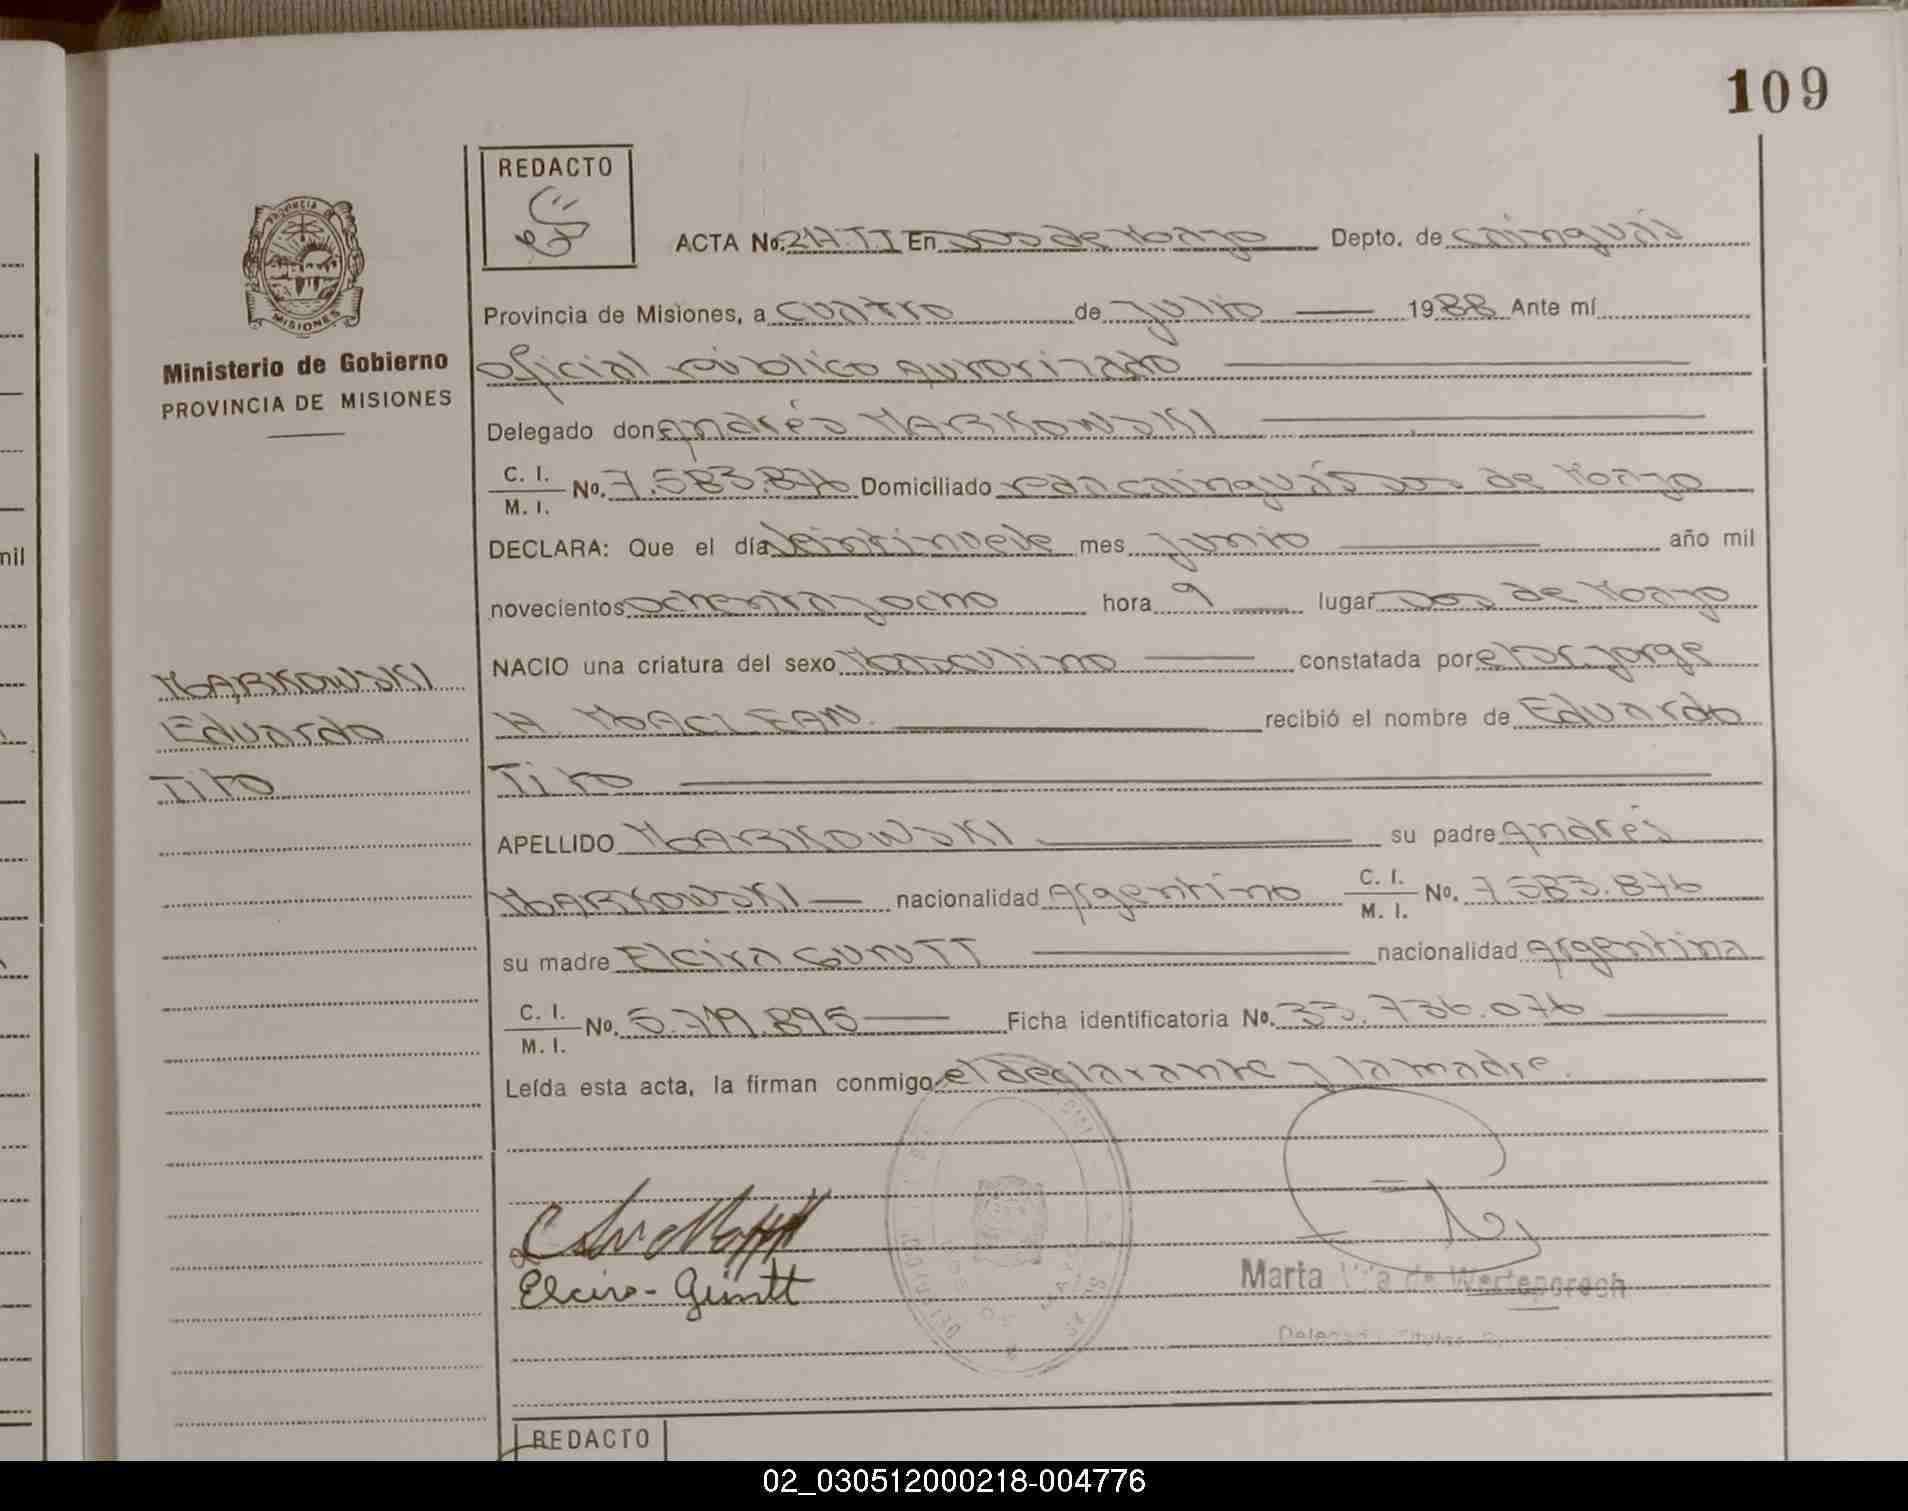 109
REDACTO
PROVINCIA DE
MISIONES
Ministerio de Gobierno
PROVINCIA DE MISIONES
ACTA No. En Dos de Mayo Depto. de Cainguás
Provincia de Misiones, a cuatro de julio 1988 Ante mí
oficial público autorizado
Delegado don Andrés MARKOWSKI
C. I. M. I. No. 7.583.876 Domiciliado Dos de Mayo
DECLARA: Que el día veintinueve mes junio año mil
mil
novecientos ochenta y ocho hora 9 lugar Dos de Mayo
NACIO una criatura del sexo Masculino constatada por el Dr. Jorge
MARKOWSKI
H. MACLEAN. recibió el nombre de Eduardo
Eduardo
Tito
Tito
APELLIDO MARKOWSKI su padre Andrés
MARKOWSKI nacionalidad Argentino C. I. M. I. No. 7.583.876
su madre Elcira GUNTT nacionalidad Argentina
C. I. M. I. No. 5.719.895 Ficha identificatoria No. 33.736.076
Leída esta acta, la firman conmigo el declarante y la madre.
Elcira - Guintt
Marta de
REDACTO
02_030512000218-004776